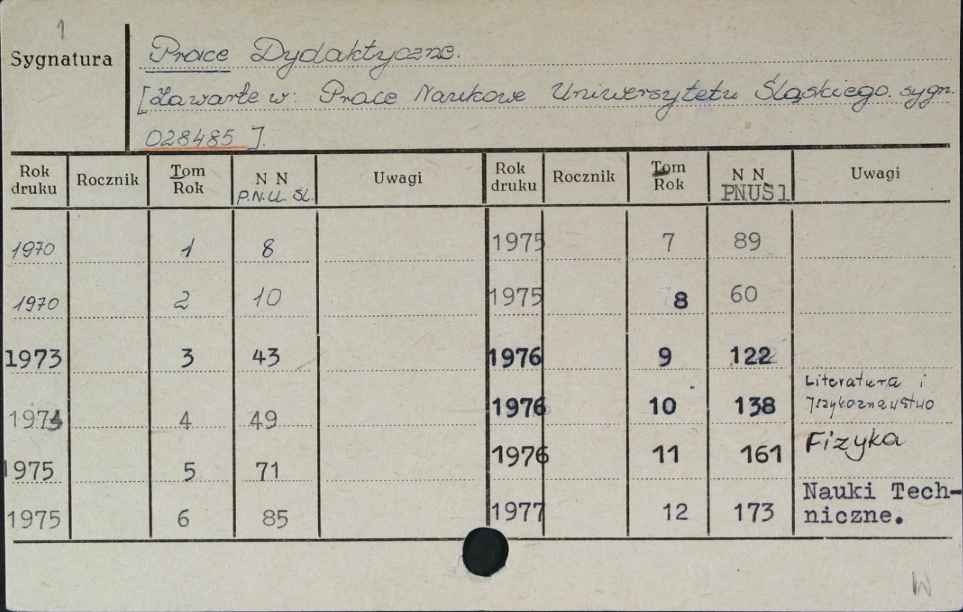 1
Sygnatura
Prace Dydaktyczne.
[Zawarte w: Prace Naukowe Uniwersytetu Śląskiego. sygn.
028485 ].
Rok druku Rocznik Tom Rok N N P.N.U. Śl. Uwagi Rok druku Rocznik Tom Rok N N PNUSl Uwagi
1970 1 8 1975 7 89
1970 2 10 1975 8 60
1973 3 43 1976 9 122
4 49 1976 10 138 Literatura i Językoznawstwo
1975 5 71 1976 11 161 Fizyka
1975 6 85 1977 12 173 Nauki Tech-
niczne.
W